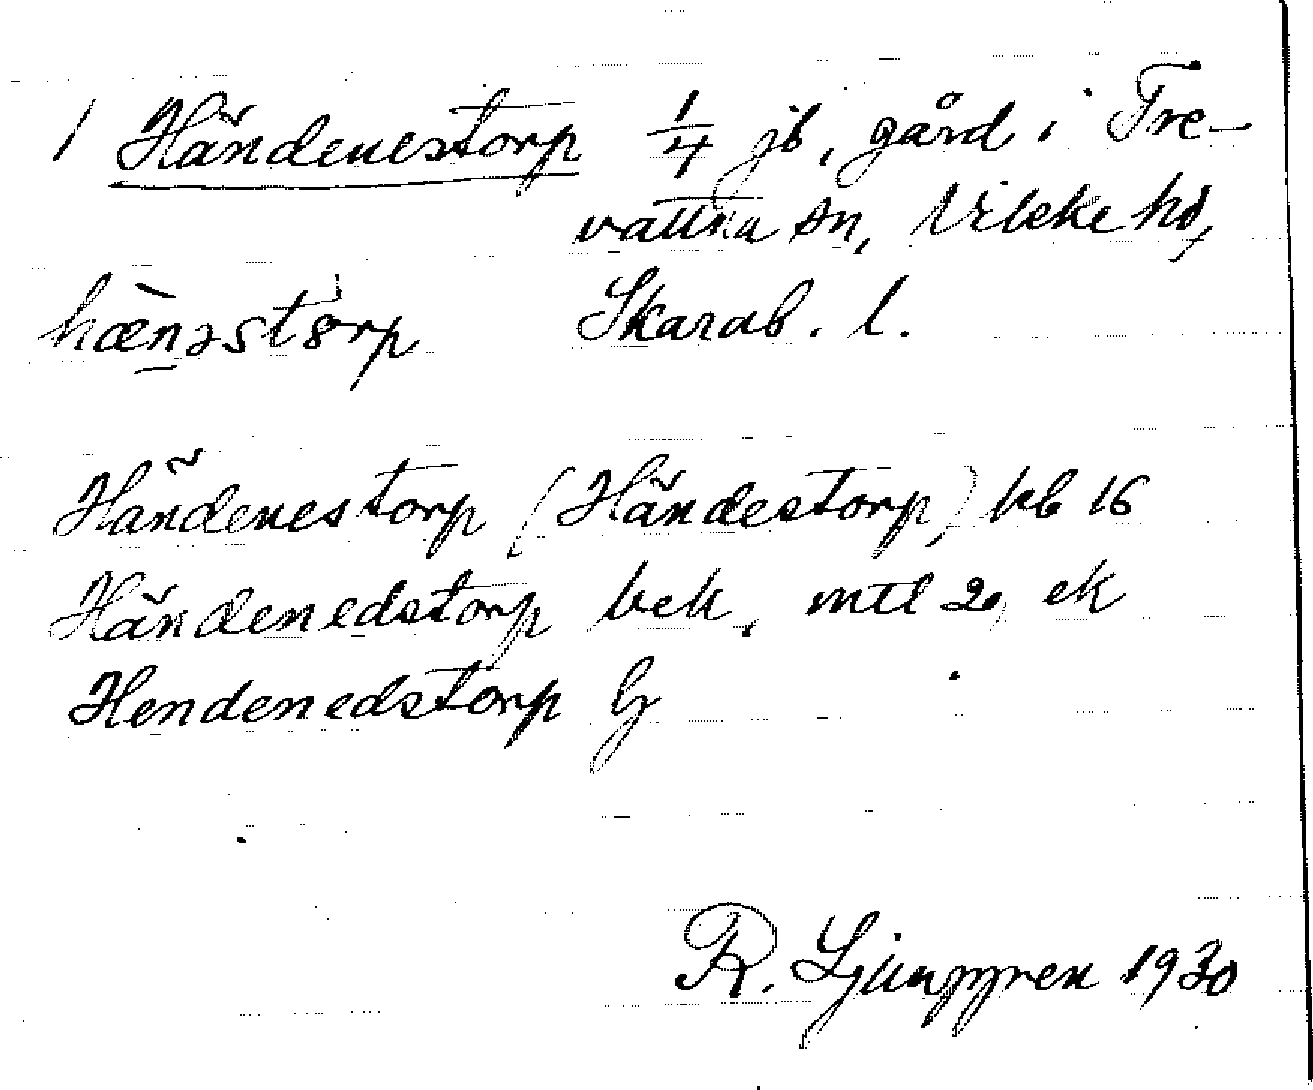 1 Händenestorp 1/4 jb, gård i Tre-
vattna sn, Vilske hd,
hæ̀nəstorp Skarab. l.
Händenestorp (Händestorp) kb 16
Händenedstorp bek, mtl 2, ek
Hendenedstorp G
R. Ljunggren 1930